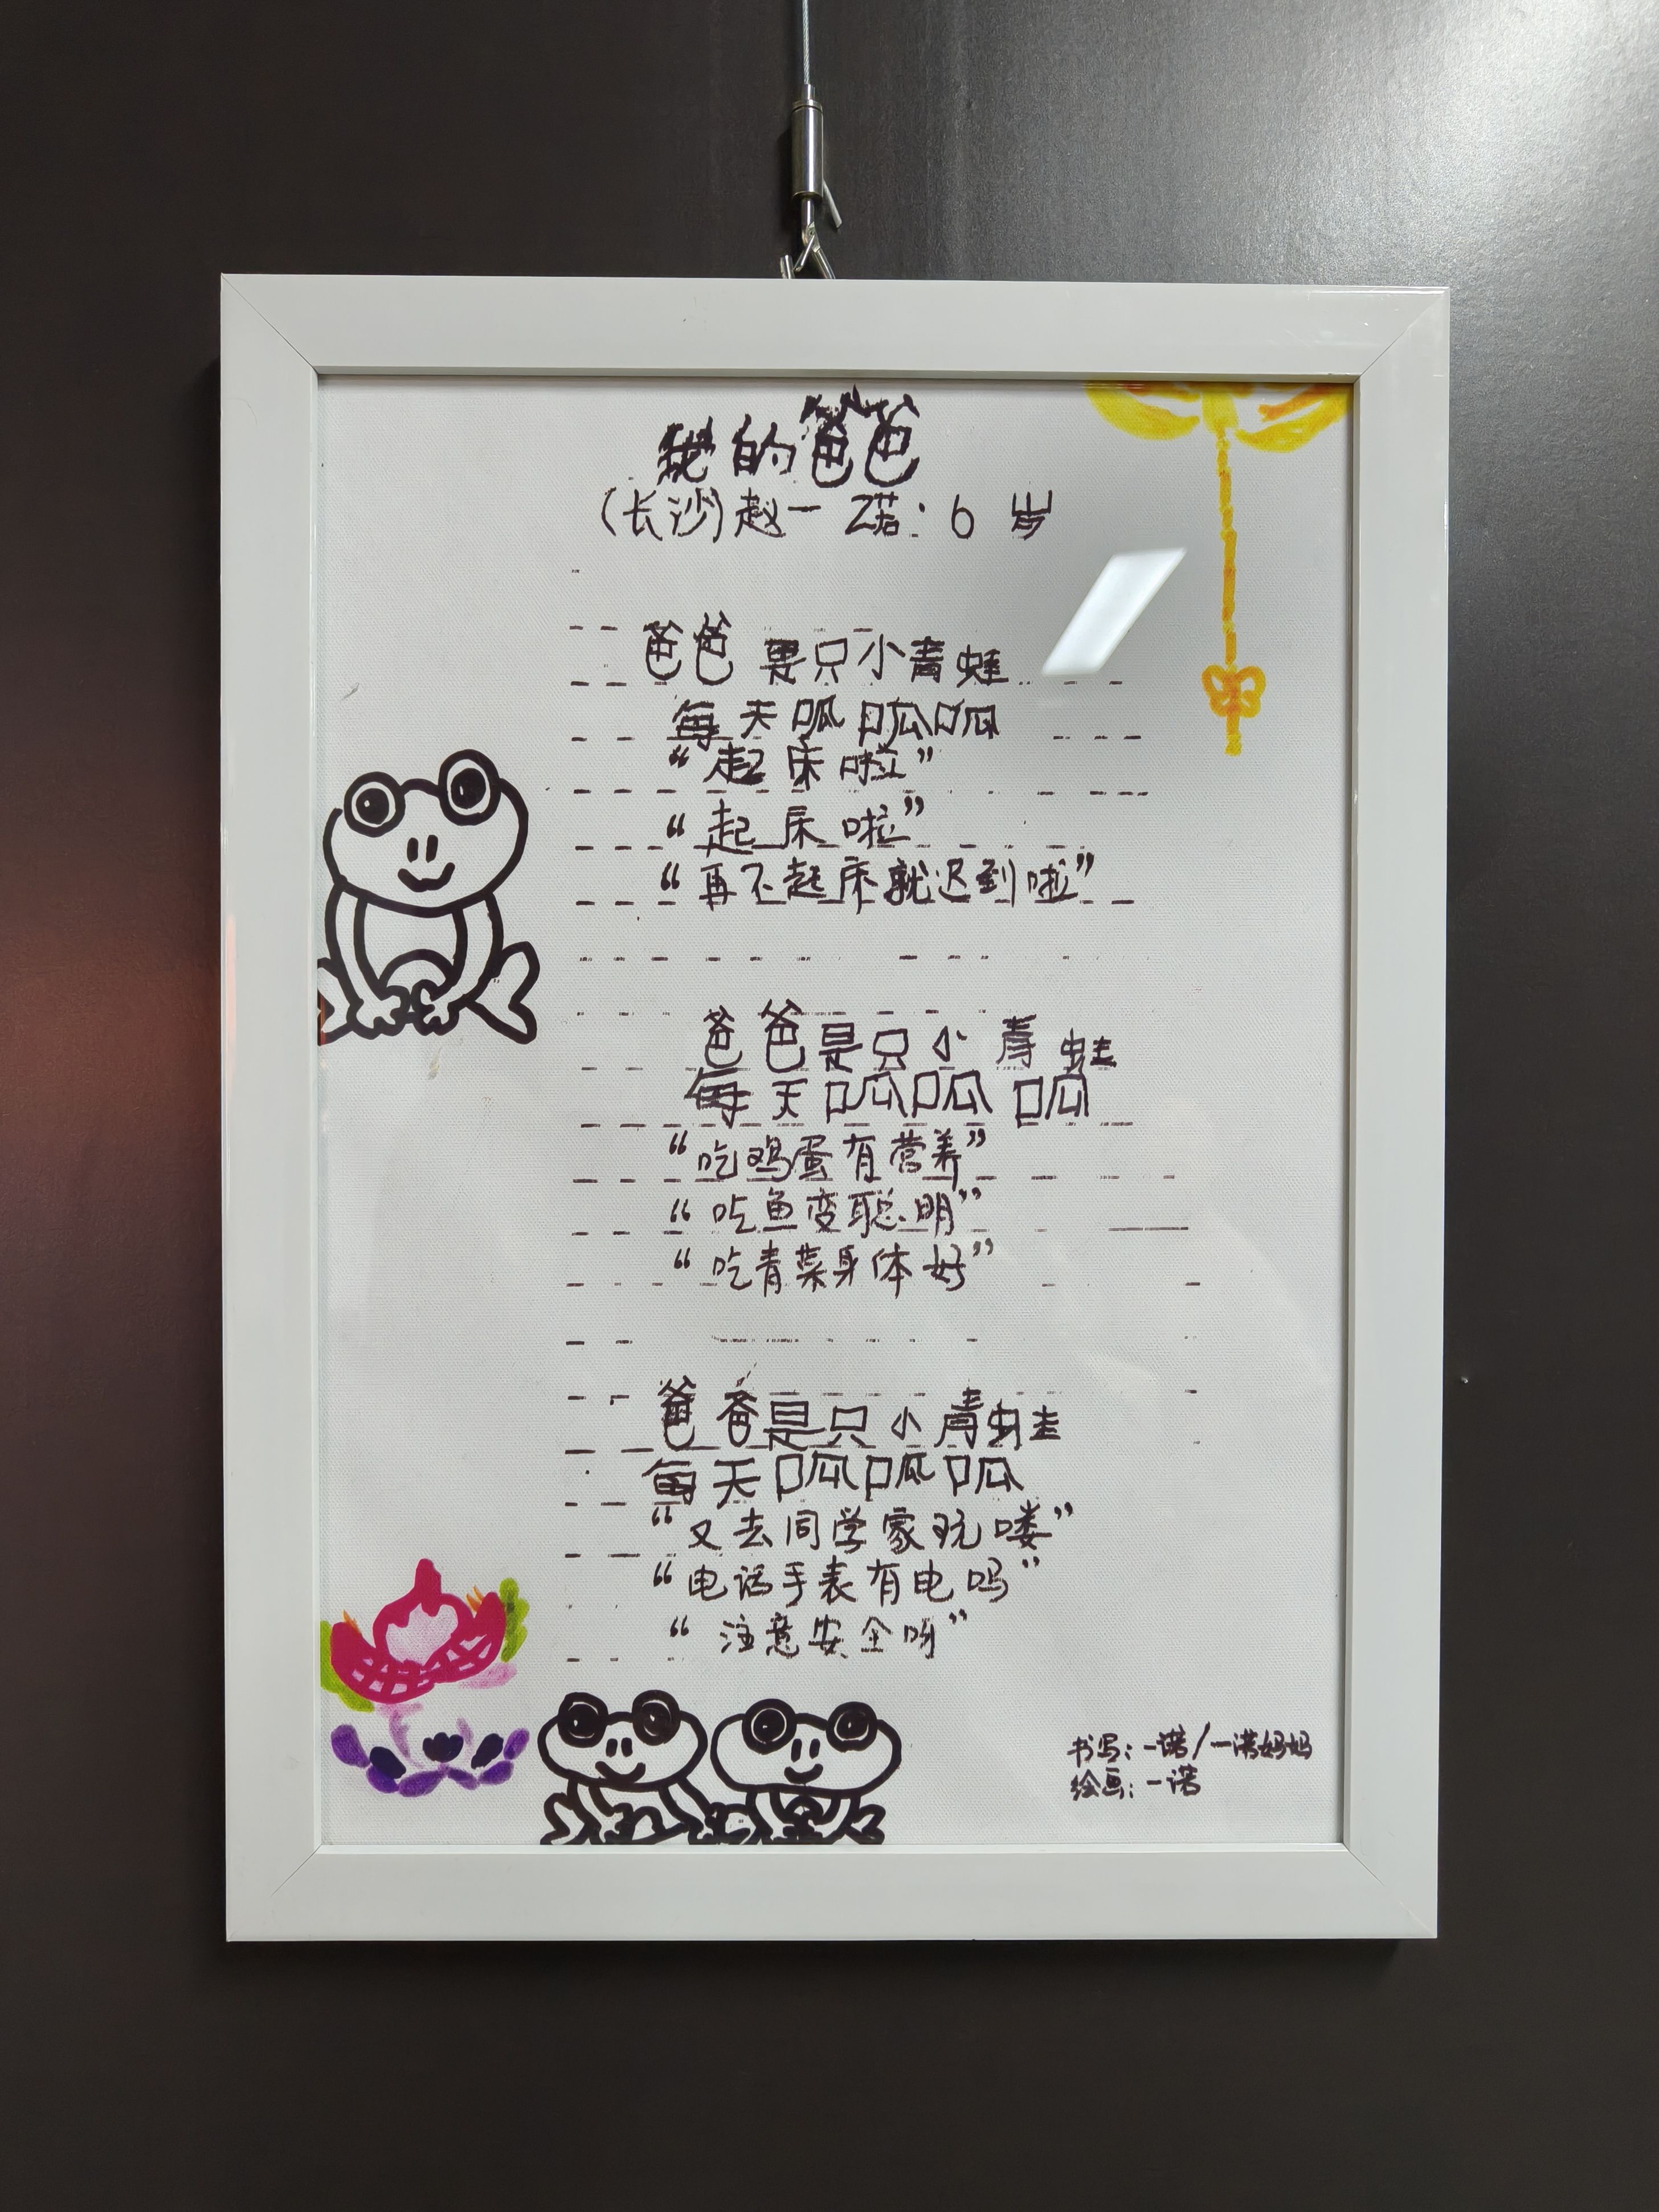 我的爸爸
(长沙)赵一诺:6 岁
爸爸是只小青蛙
每天呱呱呱
“起床啦”
“起床啦”
“再不起床就迟到啦”
爸爸是只小青蛙
每天呱呱呱
“吃鸡蛋有营养”
“吃鱼变聪明”
“吃青菜身体好”
爸爸是只小青蛙
每天呱呱呱
“又去同学家玩喽”
“电话手表有电吗”
“注意安全呀”
书写:一诺/一诺妈妈
绘画:一诺